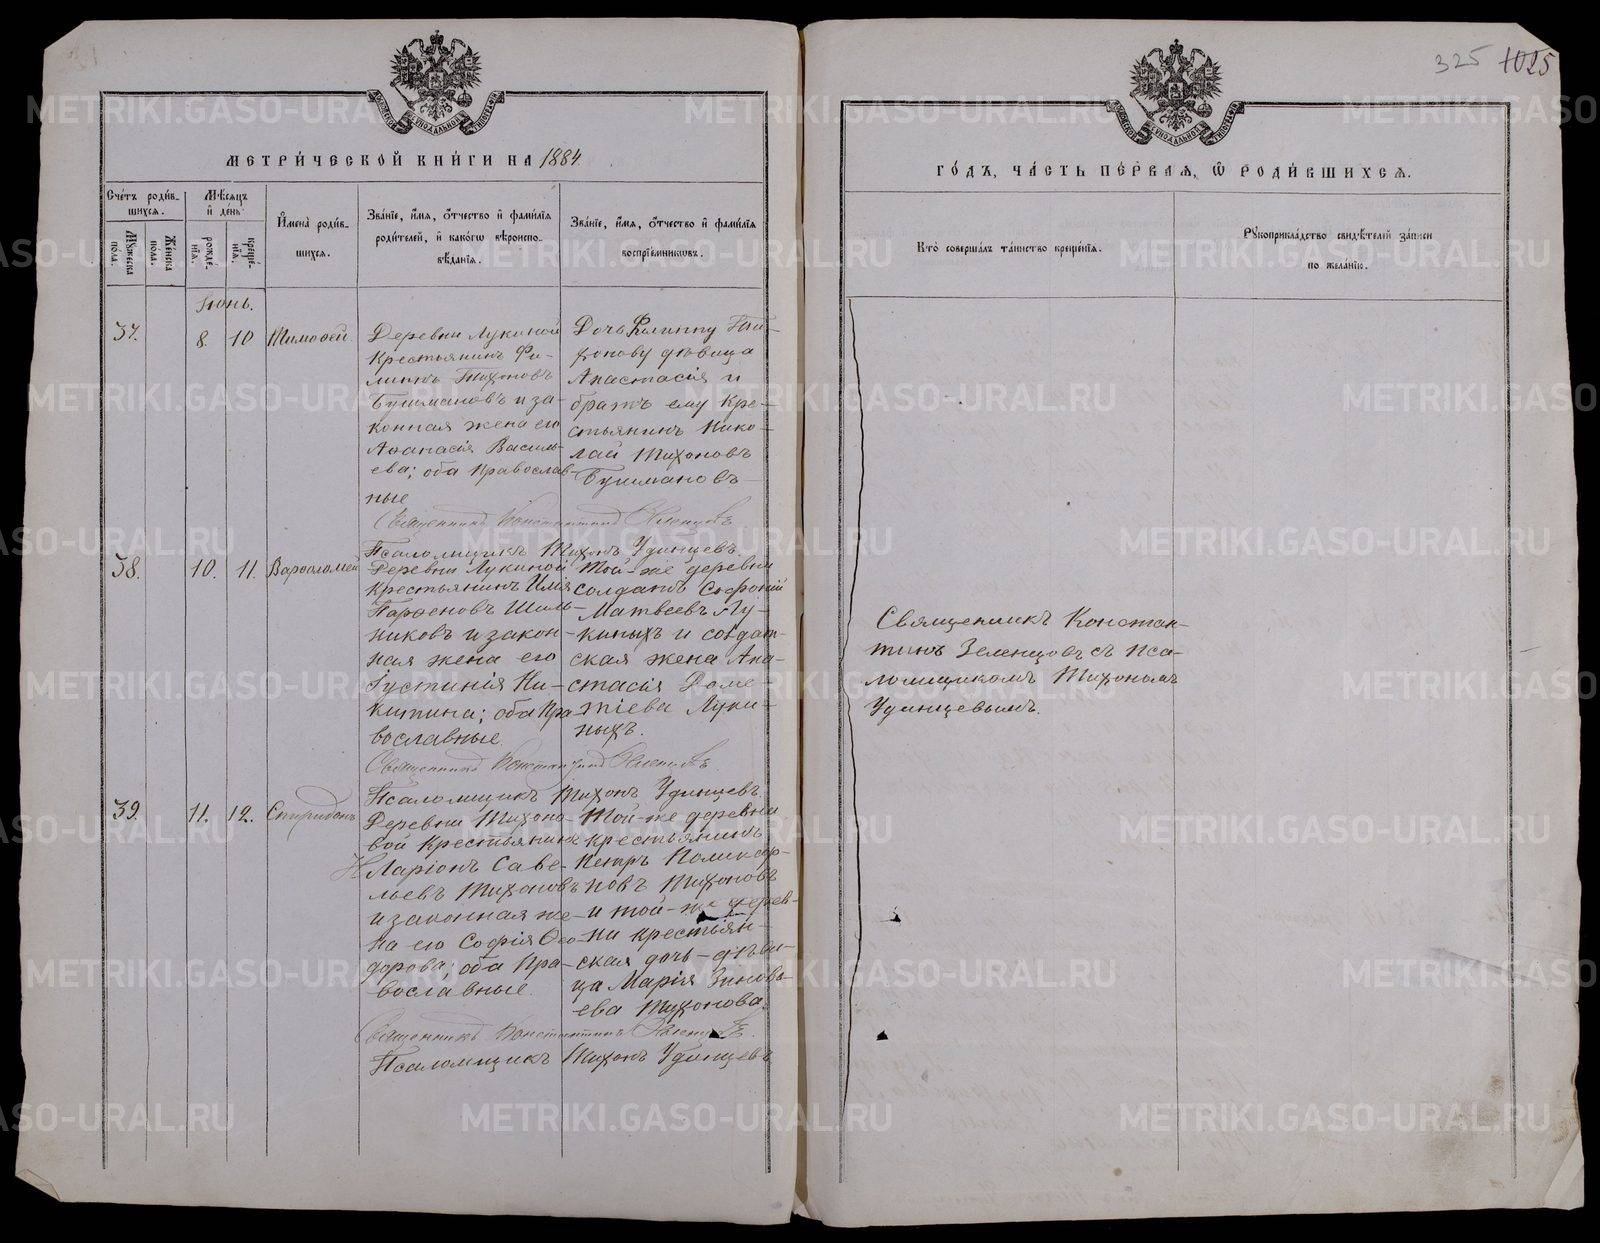 325 1025
МЕТРИ́ЧЕСКОЙ КНИ́ГИ НА 1884.
Сче́тъ роди́в-
шихся.
Мѣ́сяцъ
и҆ день
И҆мена̀ роди́в-
шихся.
Зва́нїе, и҆́мя, ѻ҆́тчество и҆ фами́лїя
роди́телей, и҆ како́гѡ вѣроиспо-
вѣ́данїя.
Зва́нїе, и҆́мя, ѻ҆́тчество и҆ фами́лїя
воспрїе́мникѡвъ.
Мꙋ́жеска
по́ла.
Же́нска
по́ла.
рожде́-
нїя.
креще́-
нїя.
Іюнь.
37.
8. 10
Тимоѳей.
Деревни Лукиной
крестьянинъ Фи-
липпъ Тихоновъ
Бушмановъ и за-
конная жена его
Аѳанасія Василь-
ева; оба Православ-
ные
Дочь Филиппу Ти-
хонову дѣвица
Анастасія и
братъ ему кре-
стьянинъ Нико-
лай Тихоновъ
Бушмановъ
Священникъ Константинъ Зеленцовъ
Псаломщикъ Тихонъ Удинцевъ.
38.
10. 11.
Варѳоломей
Деревни Лукиной
крестьянинъ
Парѳеновъ Шиль-
никовъ и закон-
ная жена его
Іустинія Ни-
китина; оба Пра-
вославные.
Той-же деревни
солдатъ Софроній
Матвеевъ Лу-
киныхъ и солдат-
ская жена Ана-
стасія Доме-
тіева Луки-
ныхъ.
Священникъ Константинъ Зеленцовъ
Псаломщикъ Тихонъ Удинцевъ.
39.
11. 12.
Спиридонъ
Деревни Тихоно-
вой крестьянинъ
Иларіонъ Саве-
льевъ Тихоновъ
и законная же-
на его Софія Ѳео-
дорова; оба Пра-
вославные.
Той-же деревни
крестьянинъ
Петръ Поликар-
повъ Тихоновъ
и той-же дерев-
ни крестьян-
ская дочь-дѣви-
ца Марія Зиновь-
ева Тихонова.
Священникъ Константинъ Зеленцовъ.
Псаломщикъ Тихонъ Удинцевъ
ГО́ДЪ, ЧА́СТЬ ПЕ́РВАЯ, Ѽ РОДИ́ВШИХСЯ.
Кто̀ соверша́лъ та́инство креще́нїя.
Рꙋкоприкла́дство свидѣ́телей за́писи
по жела́нїю.
Священникъ Констан-
тинъ Зеленцовъ съ Пса-
ломщикомъ Тихономъ
Удинцевымъ.
METRIKI.GASO-URAL.RU